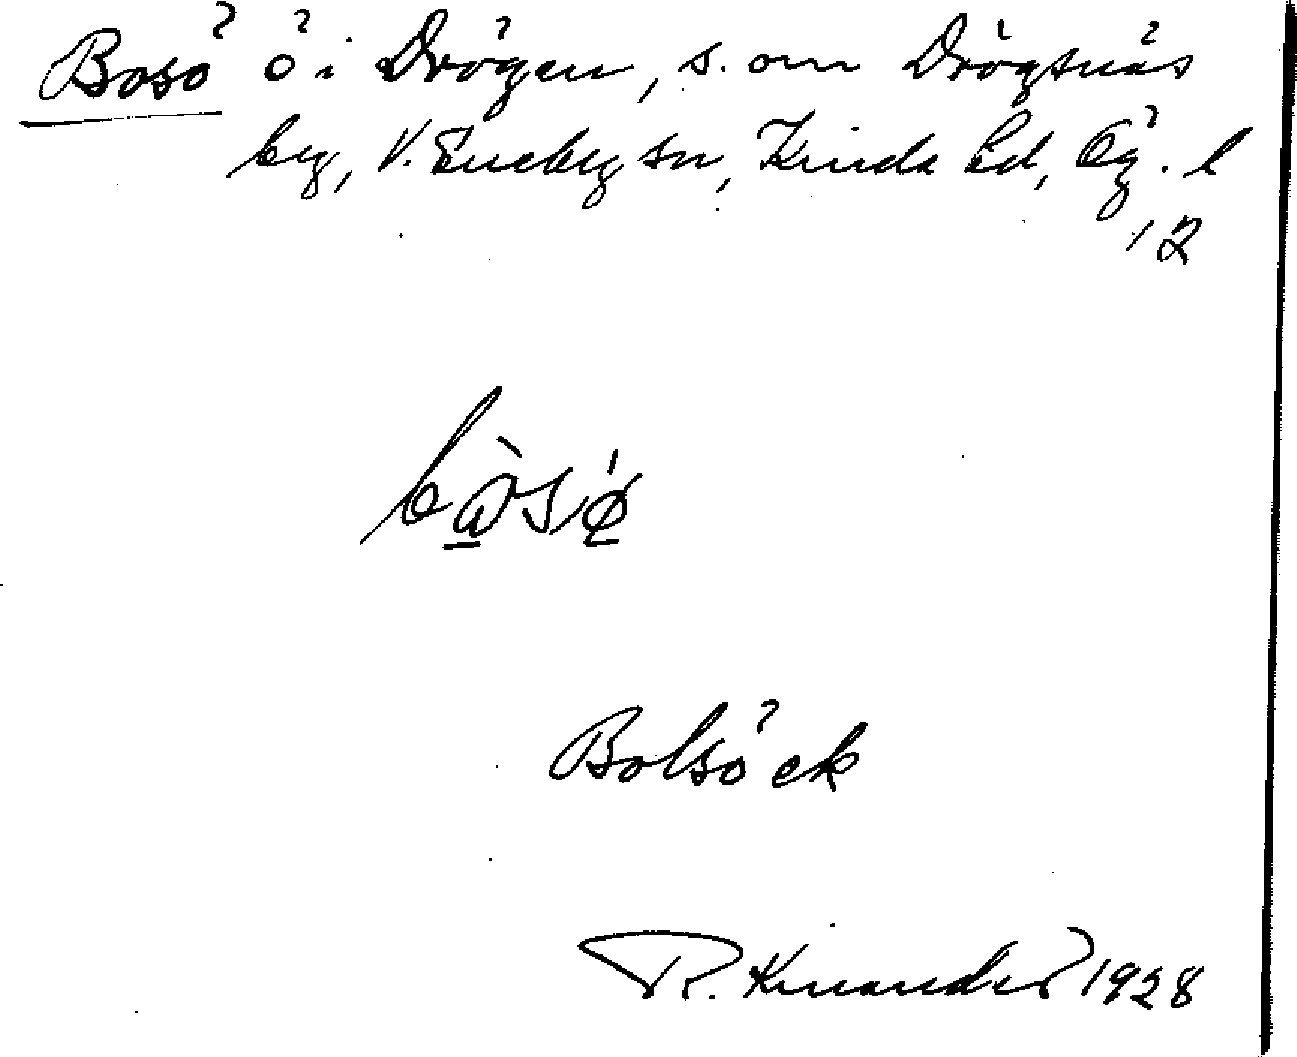 Bosö ö i Drögen, s. om Drögsnäs
by, V. Eneby sn, Kinda hd, Ög. l
12
bὼsǿ
Bolsö ek
R. Kinander 1928